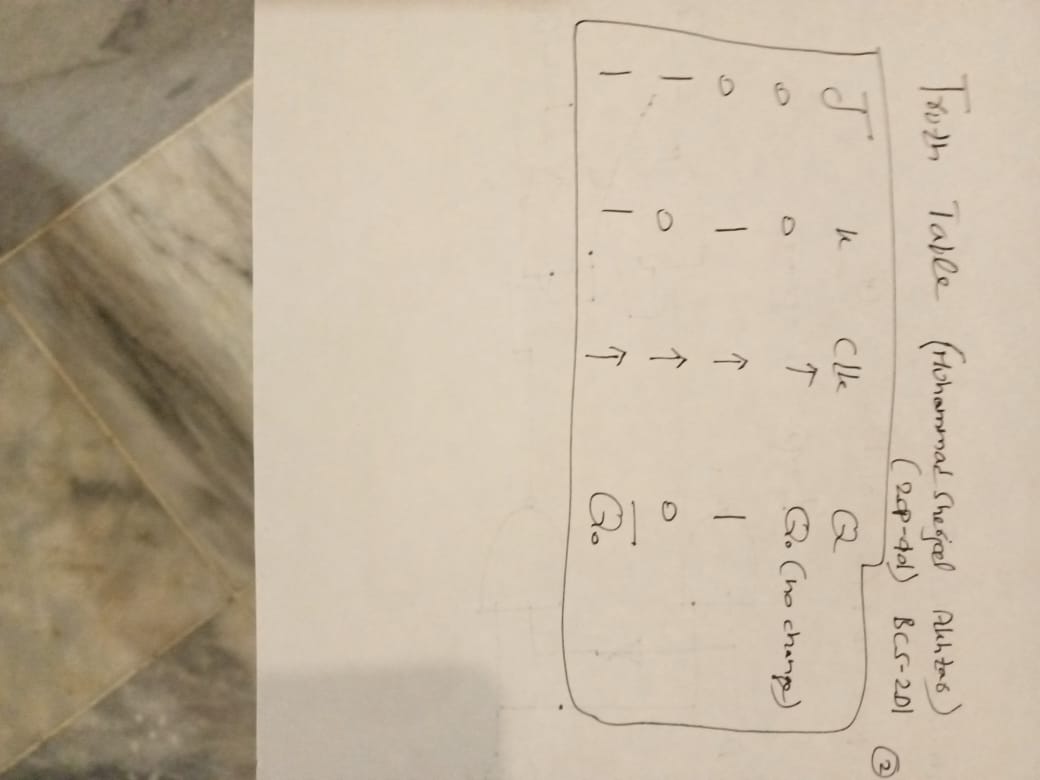 Truth Table (Muhammad Sheejeel Akhtab)
BCS-2D1
②
J K Clk Q
0 0 ↑ Q₀ (no change)
0 1 ↑ 1
1 0 ↑ 0
1 1 ↑ Q̅₀